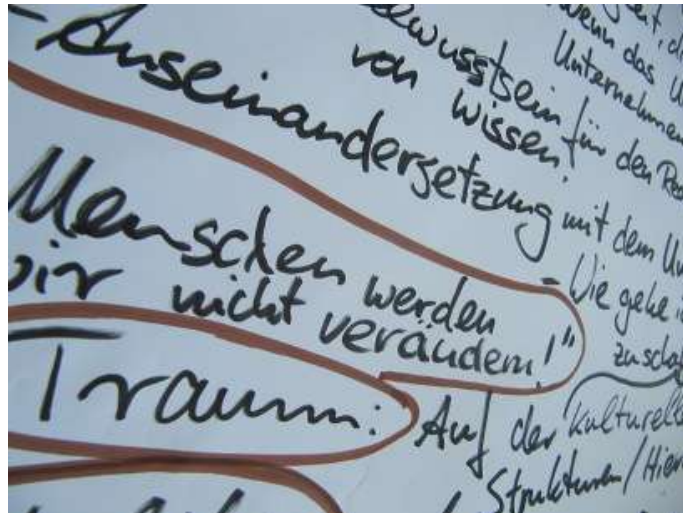 -Auseinandersetzung mit dem
von Wissen!
für den
wenn das
Unternehmen
Menschen werden
wir nicht verändern!"
- Wie gehe
Traum: Auf der kulturelle
Strukturen/Hier